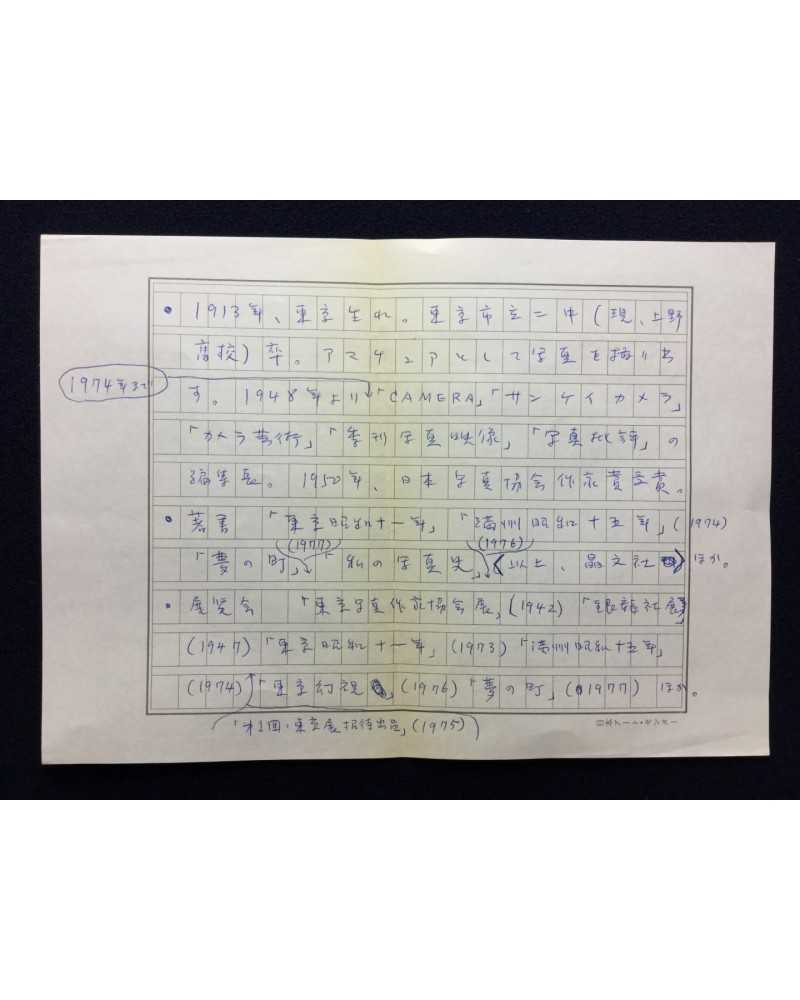 • 1913年、東京生れ。東京市立二中(現、上野
高校)卒。アマチュアとして写真を始めま
す。1948年より「CAMERA」「サンケイカメラ」
1974年まで
「カメラ芸術」「季刊写真映像」「写真批評」の
編集長。1950年、日本写真協会作家賞受賞。
• 著書 「東京昭和十一年」「満州昭和十五年」(1974)
(1977) (1976)
「夢の町」「私の写真史」(以上、晶文社)ほか。
• 展覧会 「東京写真作家協会展」(1942)「銀龍社展」
(1947)「東京昭和十一年」(1973)「満州昭和十五年」
(1974)「東京幻視」(1976)「夢の町」(1977)ほか。
「第1回・東京展招待出品」(1975)